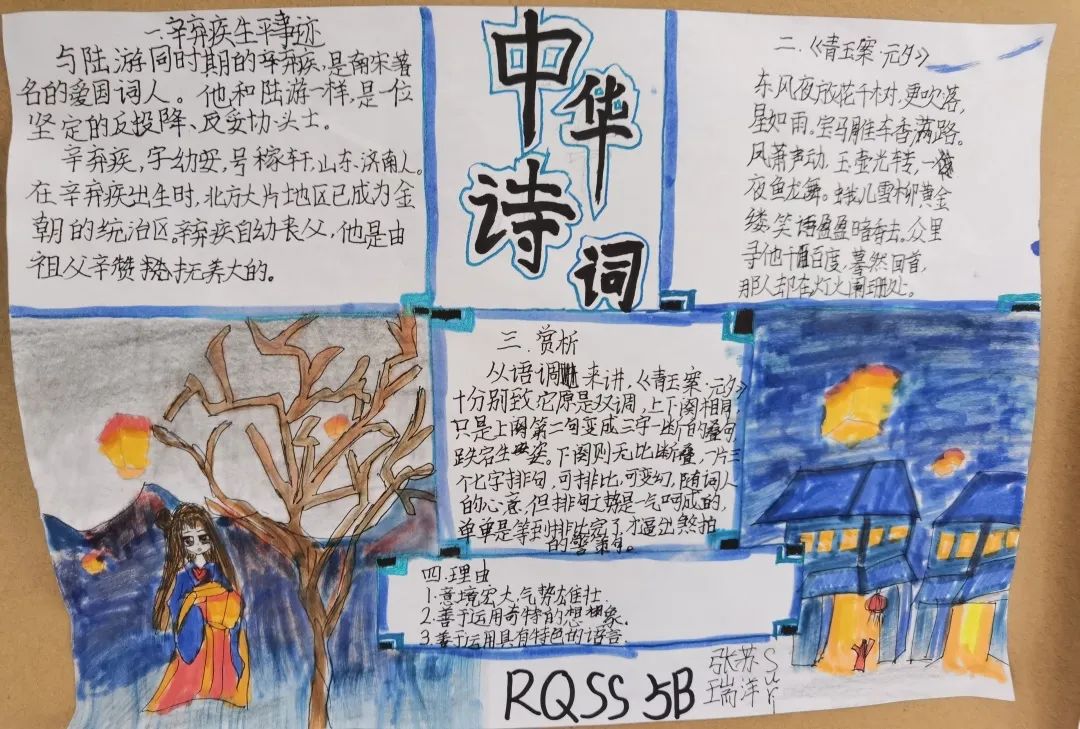 一.辛弃疾生平事迹
与陆游同时期的辛弃疾,是南宋著
名的爱国词人。他和陆游一样,是一位
坚定的反投降、反妥协斗士。
辛弃疾,字幼安,号稼轩,山东济南人。
在辛弃疾出生时,北方大片地区已成为金
朝的统治区。辛弃疾自幼丧父,他是由
祖父辛赞抚养大的。
中
华
诗
词
二.《青玉案·元夕》
东风夜放花千树,更吹落,
星如雨。宝马雕车香满路。
风萧声动,玉壶光转,一
夜鱼龙舞。蛾儿雪柳黄金
缕,笑语盈盈暗香去。众里
寻他千百度,蓦然回首,
那人却在灯火阑珊处。
三.赏析
从语调来讲,《青玉案·元夕》
十分别致它原是双调,上下阕相同,
只是上阕第二句变成三字一断的叠句,
跌宕生姿。下阕则无此断叠,一片三
个七字排句,可排比,可变幻,随词人
的心意,但排句之势是一气呵成的,
单单是等到排比完了,才逼出煞拍
的警策句。
四.理由
1.意境宏大气势雄壮.
2.善于运用奇特的想象.
3.善于运用具有特色的语言.
RQSS 5B
张苏
瑞洋